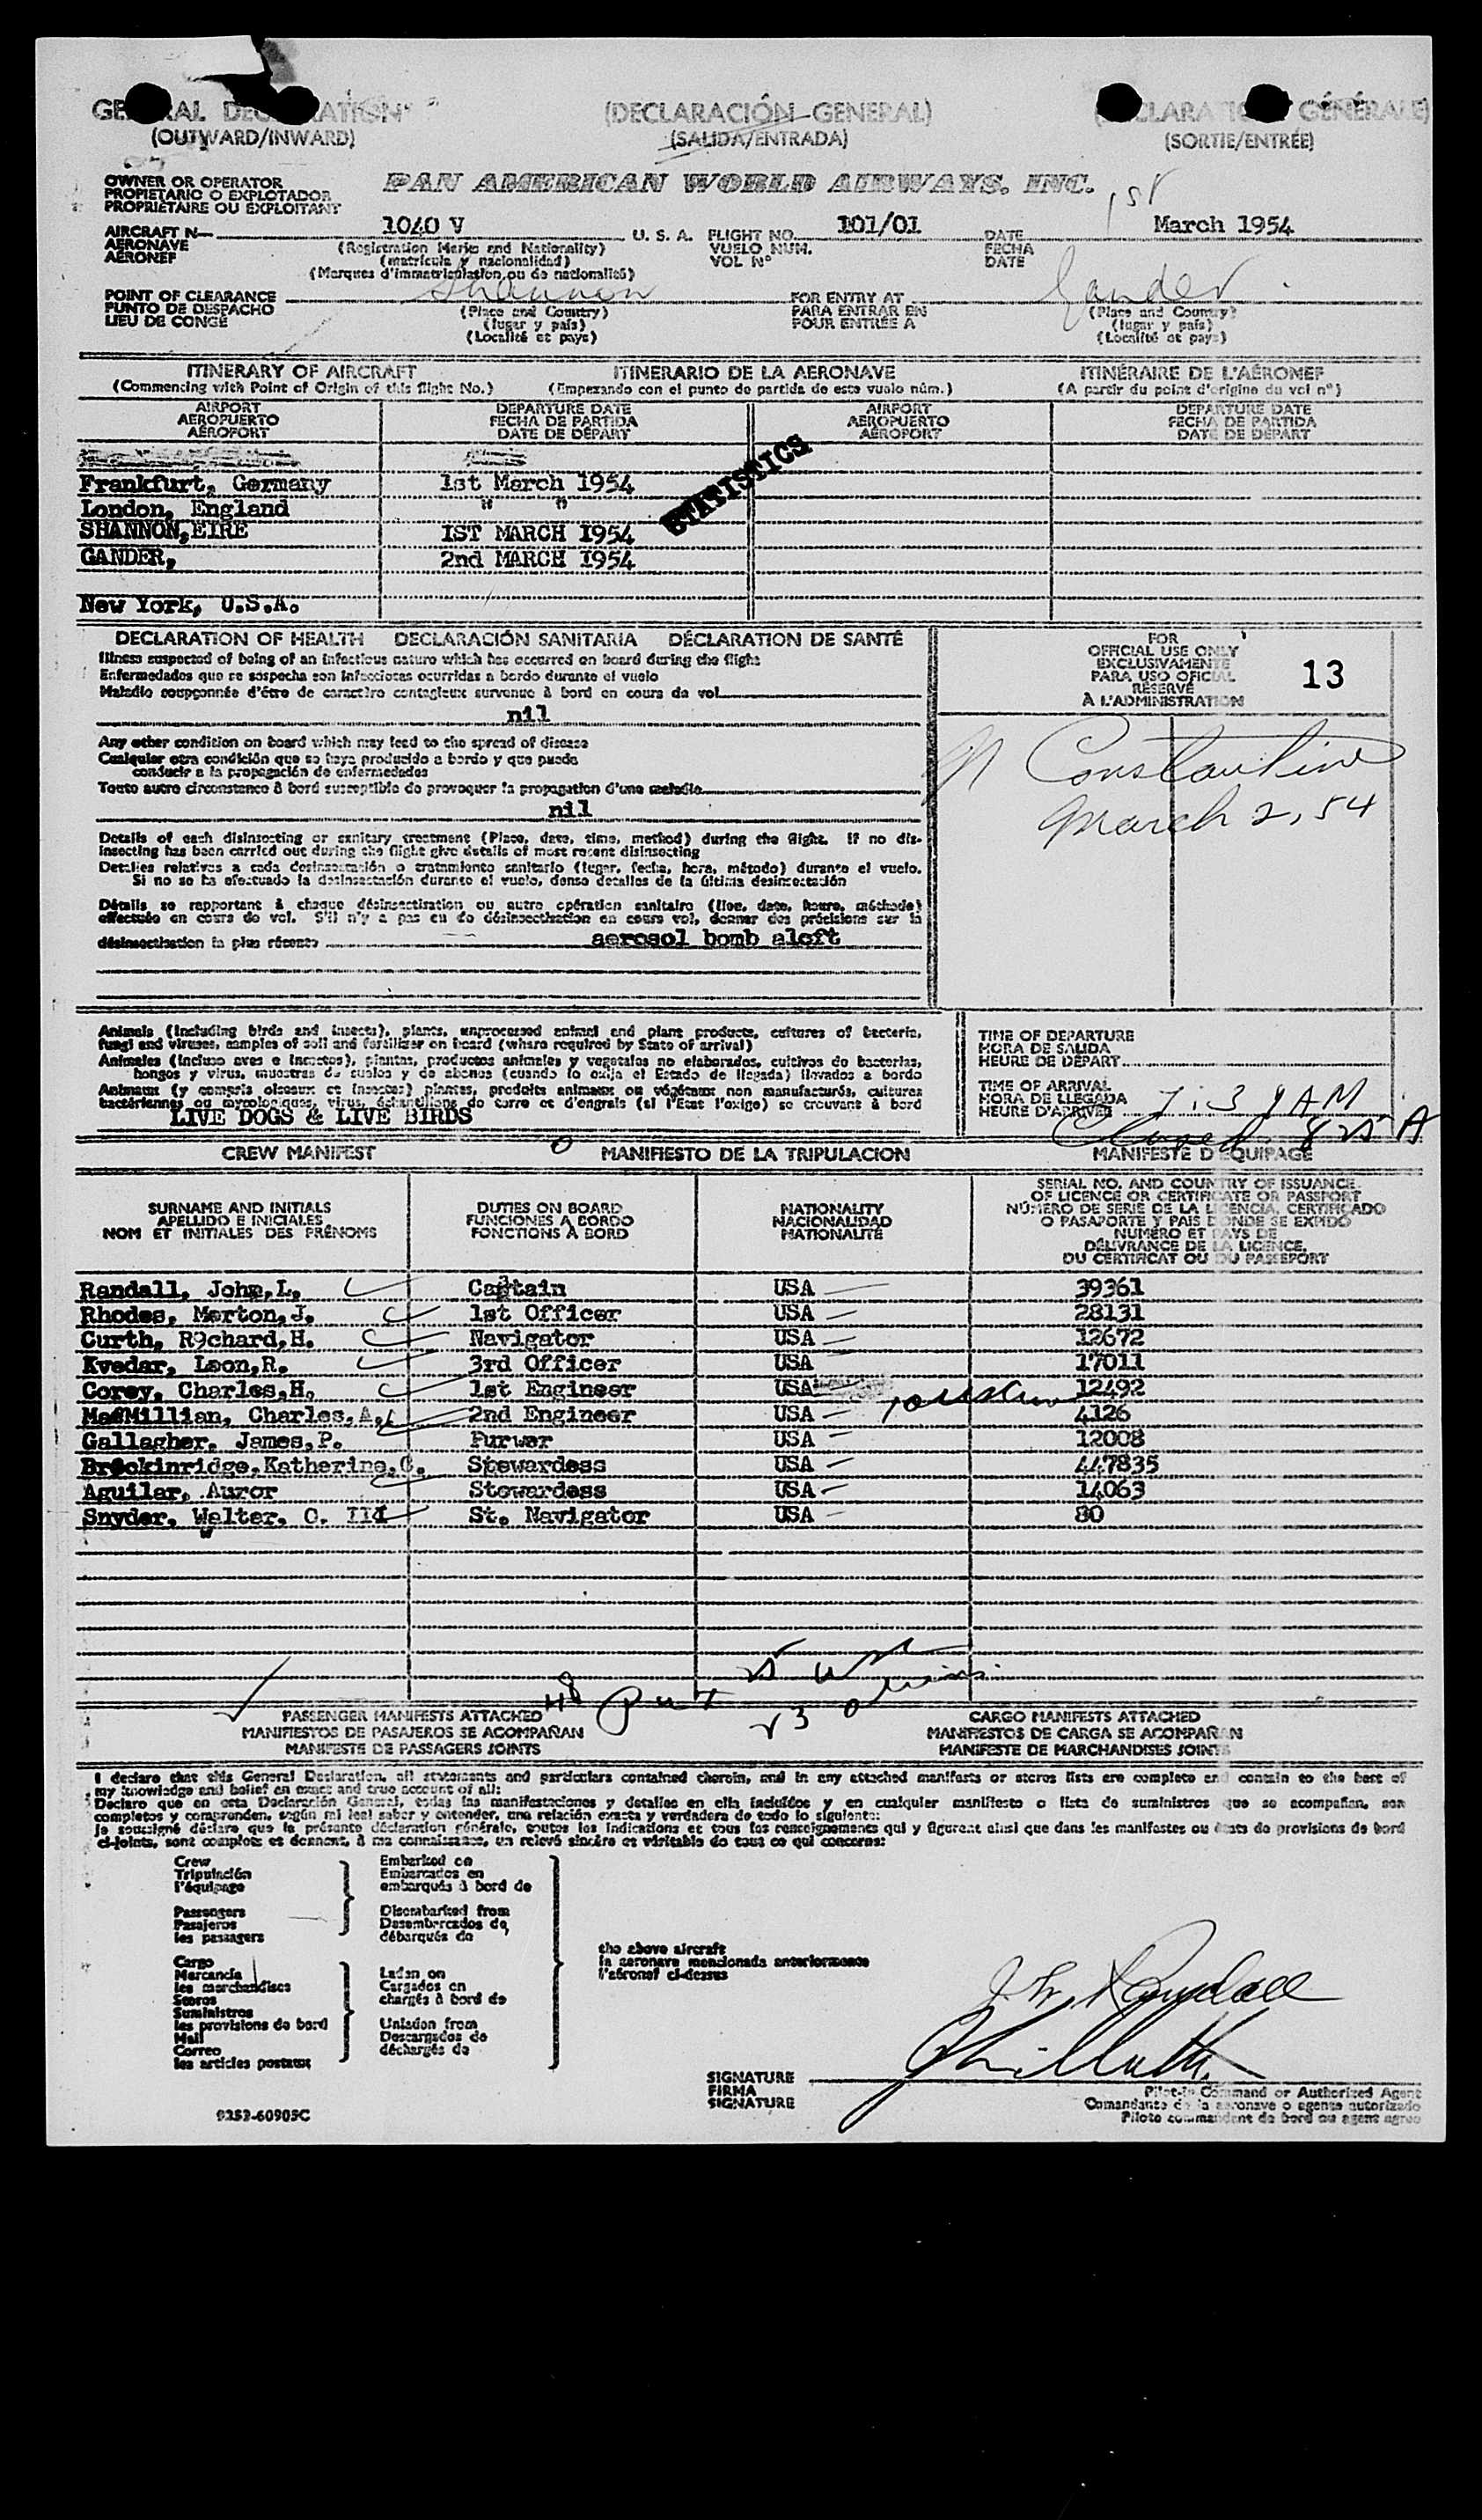 GENERAL DECLARATION (DECLARACIÓN GENERAL) (DÉCLARATION GÉNÉRALE)
(OUTWARD/INWARD) (SALIDA/ENTRADA) (SORTIE/ENTRÉE)
OWNER OR OPERATOR PAN AMERICAN WORLD AIRWAYS, INC.
PROPIETARIO O EXPLOTADOR
PROPRIÉTAIRE OU EXPLOITANT
1st
AIRCRAFT N— 1040 V U. S. A. FLIGHT NO. 101/01 DATE March 1954
AERONAVE (Registration Marks and Nationality) VUELO NUM. FECHA
AÉRONEF (matrícula y nacionalidad) VOL Nº DATE
(Marques d'immatriculation ou de nationalité)
POINT OF CLEARANCE Shannon FOR ENTRY AT Gander
PUNTO DE DESPACHO (Place and Country) PARA ENTRAR EN (Place and Country)
LIEU DE CONGÉ (lugar y país) POUR ENTRÉE A (lugar y país)
(Localité et pays) (Localité et pays)
ITINERARY OF AIRCRAFT ITINERARIO DE LA AERONAVE ITINÉRAIRE DE L'AÉRONEF
(Commencing with Point of Origin of this flight No.) (Empezando con el punto de partida de este vuelo núm.) (A partir du point d'origine du vol nº)
AIRPORT DEPARTURE DATE AIRPORT DEPARTURE DATE
AEROPUERTO FECHA DE PARTIDA AEROPUERTO FECHA DE PARTIDA
AÉROPORT DATE DE DÉPART AÉROPORT DATE DE DÉPART
STATISTICS
Frankfurt, Germany 1st March 1954
London, England " "
SHANNON,EIRE IST MARCH I954
GANDER, 2nd MARCH I954
New York, U.S.A.
DECLARATION OF HEALTH DECLARACIÓN SANITARIA DÉCLARATION DE SANTÉ
Illness suspected of being of an infectious nature which has occurred on board during the flight
Enfermedades que se sospecha son infecciosas ocurridas a bordo durante el vuelo
Maladie soupçonnée d'être de caractère contagieux survenue à bord en cours de vol
nil
Any other condition on board which may lead to the spread of disease
Cualquier otra condición que se haya producido a bordo y que pueda
conducir a la propagación de enfermedades
Toute autre circonstance à bord susceptible de provoquer la propagation d'une maladie
nil
Details of each disinsecting or sanitary treatment (Place, date, time, method) during the flight. If no dis-
insecting has been carried out during the flight give details of most recent disinsecting
Detalles relativos a cada desinsectación o tratamiento sanitario (lugar, fecha, hora, método) durante el vuelo.
Si no se ha efectuado la desinsectación durante el vuelo, dense detalles de la última desinsectación
Détails se rapportant à chaque désinsectisation ou autre opération sanitaire (lieu, date, heure, méthode)
effectuée en cours de vol. S'il n'y a pas eu de désinsectisation en cours vol, donner des précisions sur la
désinsectisation la plus récente aerosol bomb aloft
FOR
OFFICIAL USE ONLY
EXCLUSIVAMENTE
PARA USO OFICIAL
RÉSERVÉ
À L'ADMINISTRATION
13
N Constantine
March 2, 54
Animals (including birds and insects), plants, unprocessed animal and plant products, cultures of bacteria,
fungi and viruses, samples of soil and fertilizer on board (where required by State of arrival)
Animales (incluso aves e insectos), plantas, productos animales y vegetales no elaborados, cultivos de bacterias,
hongos y virus, muestras de suelos y de abonos (cuando lo exija el Estado de llegada) llevados a bordo
Animaux (y compris oiseaux et insectes) plantes, produits animaux ou végétaux non manufacturés, cultures
bactériennes ou mycologiques, virus, échantillons de terre et d'engrais (si l'Etat l'exige) se trouvant à bord
LIVE DOGS & LIVE BIRDS
TIME OF DEPARTURE
HORA DE SALIDA
HEURE DE DÉPART
TIME OF ARRIVAL
HORA DE LLEGADA
HEURE D'ARRIVÉE AM
CREW MANIFEST MANIFIESTO DE LA TRIPULACION MANIFESTE D'EQUIPAGE
SURNAME AND INITIALS DUTIES ON BOARD NATIONALITY SERIAL NO. AND COUNTRY OF ISSUANCE
APELLIDO E INICIALES FUNCIONES A BORDO NACIONALIDAD OF LICENCE OR CERTIFICATE OR PASSPORT
NOM ET INITIALES DES PRÉNOMS FONCTIONS À BORD NATIONALITÉ NÚMERO DE SERIE DE LA LICENCIA, CERTIFICADO
O PASAPORTE Y PAIS DONDE SE EXPIDÓ
NUMÉRO ET PAYS DE
DÉLIVRANCE DE LA LICENCE,
DU CERTIFICAT OU DU PASSEPORT
Randall, John,L. Captain USA 39361
Rhodes, Merton,J. 1st Officer USA 28131
Curth, R9chard,H. Navigator USA 12672
Kvedar, Leon,R. 3rd Officer USA 17011
Corey, Charles,H. 1st Engineer USA 12492
MacMillian, Charles,A. 2nd Engineer USA 4126
Gallagher, James,P. Purwer USA 12008
Breckinridge,Katherine,C. Stewardess USA 447835
Aguilar, .Auror Stewardess USA 14063
Snyder, Walter, O. III St. Navigator USA 80
PASSENGER MANIFESTS ATTACHED CARGO MANIFESTS ATTACHED
MANIFIESTOS DE PASAJEROS SE ACOMPAÑAN MANIFIESTOS DE CARGA SE ACOMPAÑAN
MANIFESTE DE PASSAGERS JOINTS MANIFESTE DE MARCHANDISES JOINTS
I declare that this General Declaration, all statements and particulars contained therein, and in any attached manifests or stores lists are complete and contain to the best of
my knowledge and belief an exact and true account of all:
Declaro que en esta Declaración General, todas las manifestaciones y detalles en ella incluídos y en cualquier manifiesto o lista de suministros que se acompañan, son
completos y comprenden, según mi leal saber y entender, una relación exacta y verdadera de todo lo siguiente:
Je soussigné déclare que la présente déclaration générale, toutes les indications et tous les renseignements qui y figurent ainsi que dans les manifestes ou états de provisions de bord
ci-joints, sont complets et donnent, à ma connaissance, un relevé sincère et véritable de tout ce qui concerne:
Crew Embarked on
Tripulación Embarcados en
l'équipage embarqués à bord de
Passengers Disembarked from
Pasajeros Desembarcados de
les passagers débarqués de
the above aircraft
la aeronave mencionada anteriormente
l'aéronef ci-dessus
Cargo
Mercancía Laden on
les marchandises Cargados en
Stores chargés à bord de
Suministros
les provisions de bord Unladen from
Mail Descargados de
Correo déchargés de
les articles postaux
J. L. Randall
SIGNATURE
FIRMA
SIGNATURE
Pilot-in Command or Authorized Agent
Comandante de la aeronave o agente autorizado
Pilote commandant de bord ou agent agréé
9253-60905C